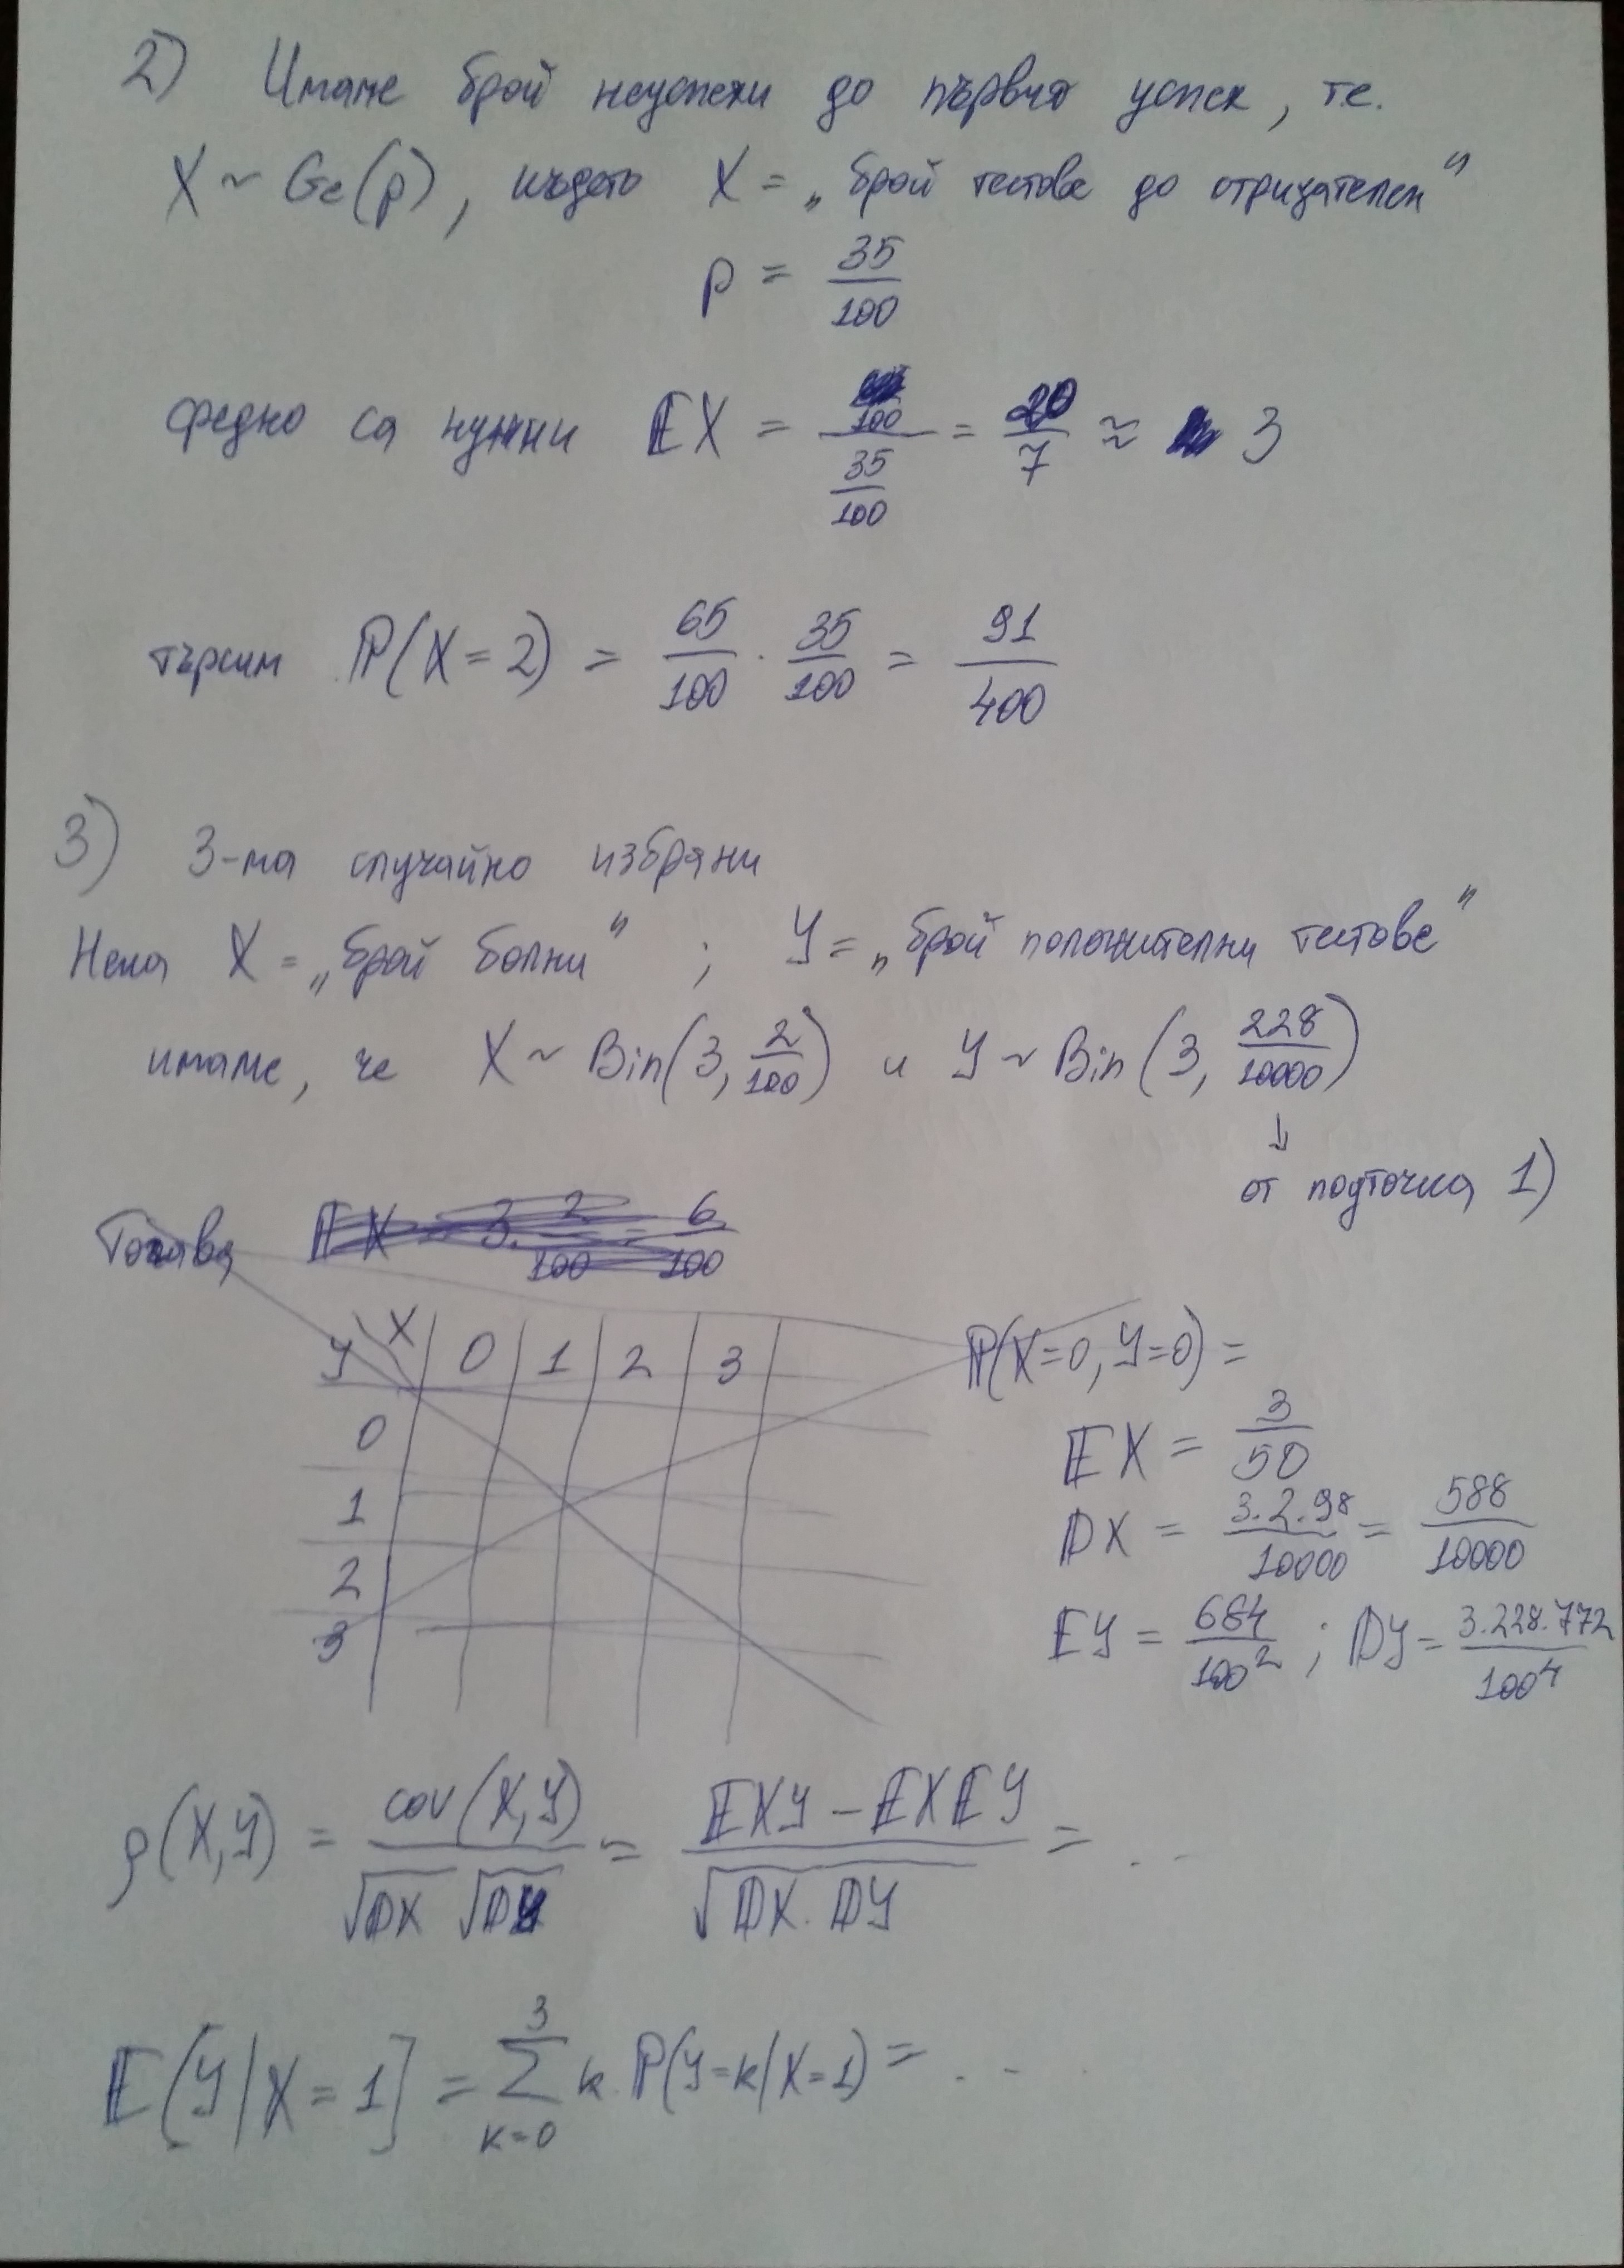 2) Имаме брой неуспехи до първия успех, т.е.
X ~ Ge(p), където X = „брой тестове до отрицателен"
p = 35/100
Средно са нужни EX = 100/100 / 35/100 = 20/7 ≈ 3
търсим P(X = 2) = 65/100 · 35/100 = 91/400
3) 3-ма случайно избрани
Нека X = „брой болни" ; Y = „брой положителни тестове"
имаме, че X ~ Bin(3, 2/100) и Y ~ Bin(3, 228/10000)
↓
от подточка 1)
Тогава EX = 3. 2/100 = 6/100
Y X 0 1 2 3
P(X=0, Y=0) =
0
EX = 3/50
1
DX = 3.2.98/10000 = 588/10000
2
EY = 684/100² ; DY = 3.228.772/100⁴
3
ρ(X,Y) = cov(X,Y)/√DX √DY = EXY - EXEY/√DX. DY = ...
E[Y|X = 1] = 3 Σ k=0 k. P(Y=k|X=1) = ...